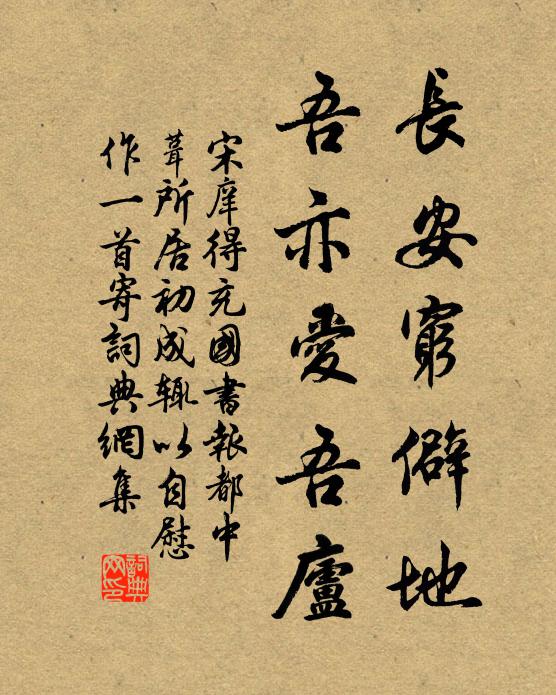 長安窮僻地
吾亦愛吾廬
宋庠得充國書報都中
葺所居初成輒以自慰
作一首寄詞典網集
詞典
网印